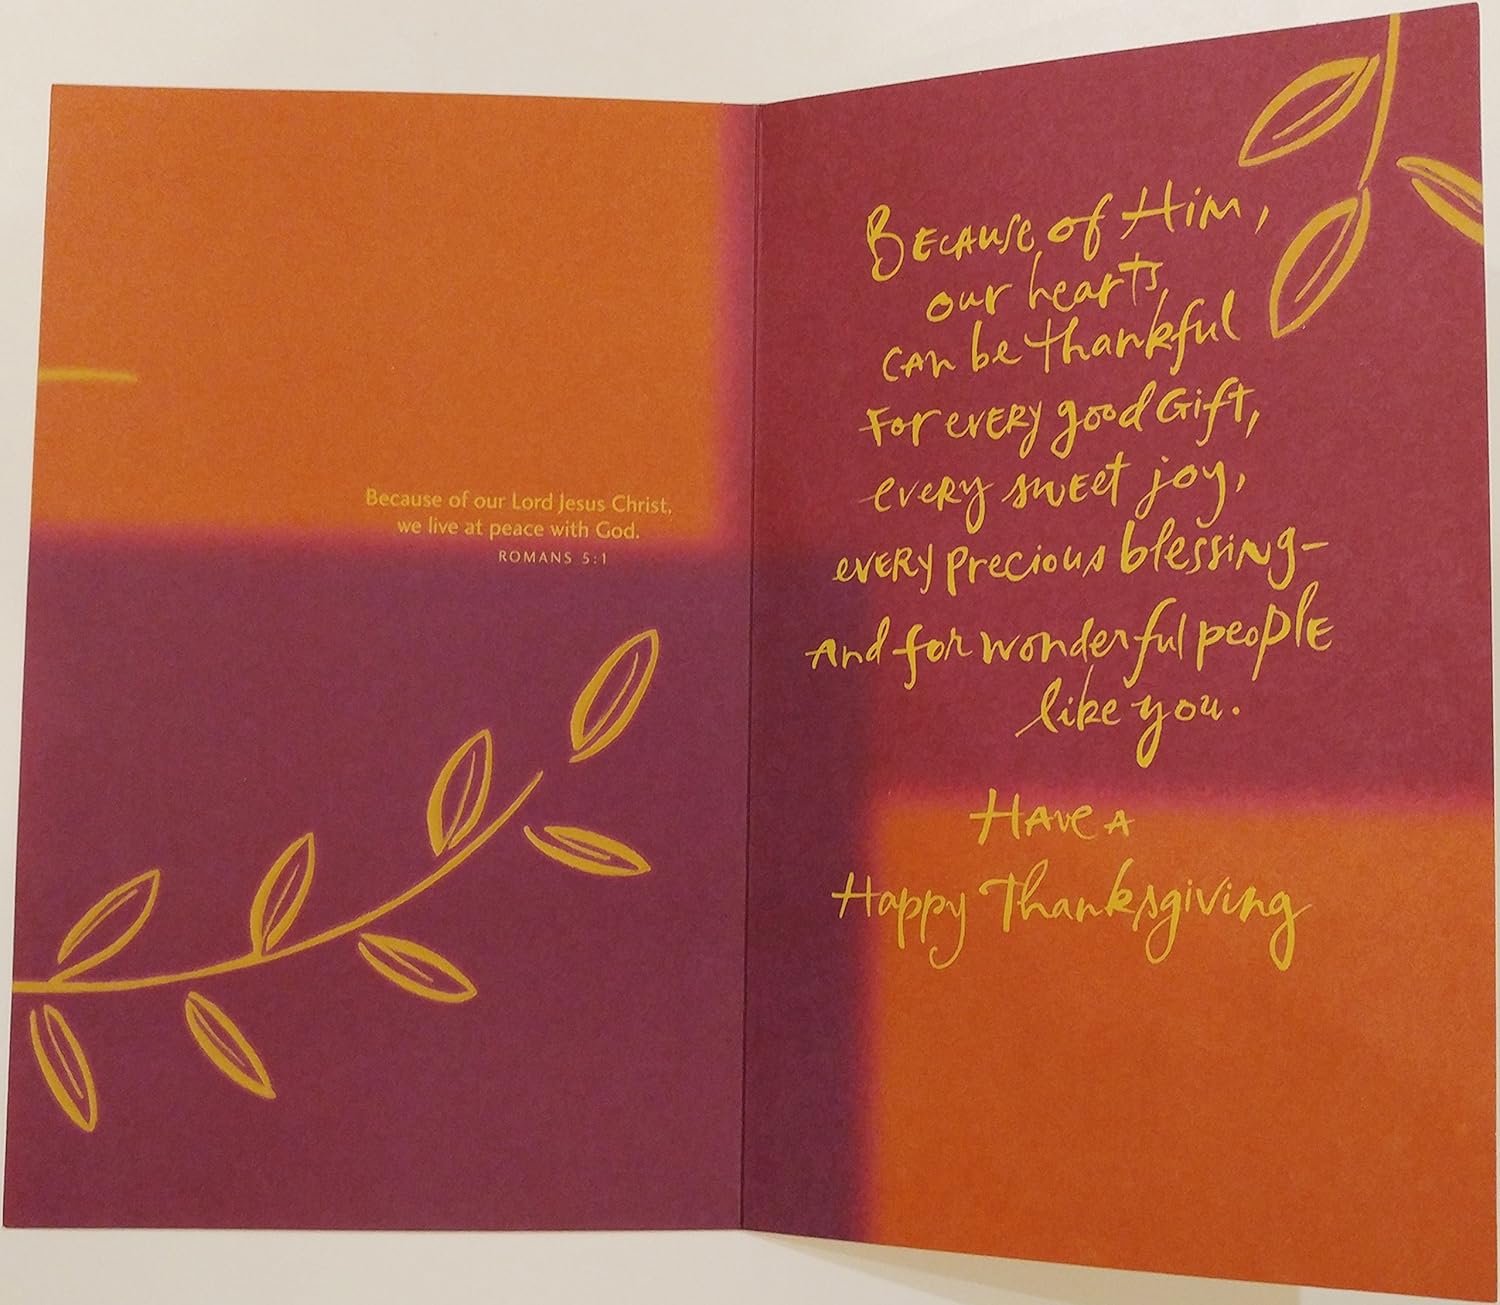 Because of our Lord Jesus Christ,
we live at peace with God.
ROMANS 5:1
Because of Him,
our hearts
can be thankful
For every good Gift,
every sweet joy,
every precious blessing—
And for wonderful people
like you.
Have A
Happy Thanksgiving